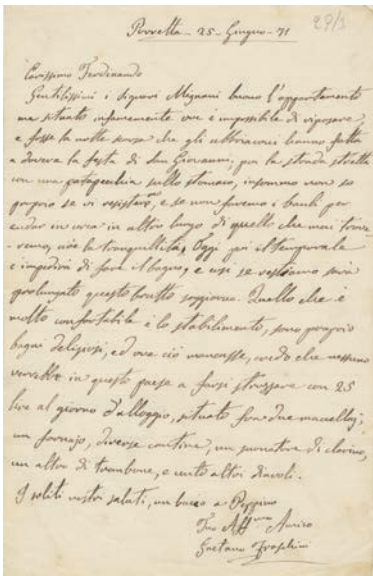 Porretta - 25 - Giugno - 71
29/3
Carissimo Ferdinando
Gentilissimi i signori Mignani buono l'appartamento
ma situato infamemente ove è impossibile di riposare,
e fosse la notte scorsa che gli ubbriaconi hanno fatta
a dovere la festa di San Giovanni; poi la strada stretta
con una catapecchia sullo stomaco, insomma non so
proprio se vi resisterò, e se non faremo i bauli per
andar in cerca in altro luogo di quello che mai trove-
-remo, cioè la tranquillità. Oggi poi il temporale
c'impedirà di fare il bagno, e così se restiamo sarà
prolungato questo brutto soggiorno. Quello che è
molto confortabile è lo stabilimento, sono proprio
bagni deliziosi, ed ove ciò mancasse, credo che nessuno
verrebbe in questo paese a farsi strozzare con 25
lire al giorno d'alloggio, situato fra due macellaj,
un fornajo, diverse cantine, un suonatore di clarino,
un altro di trombone, e cento altri diavoli.
I soliti nostri saluti, un bacio a Peppino
Tuo Aff.mo Amico
Gaetano Fraschini